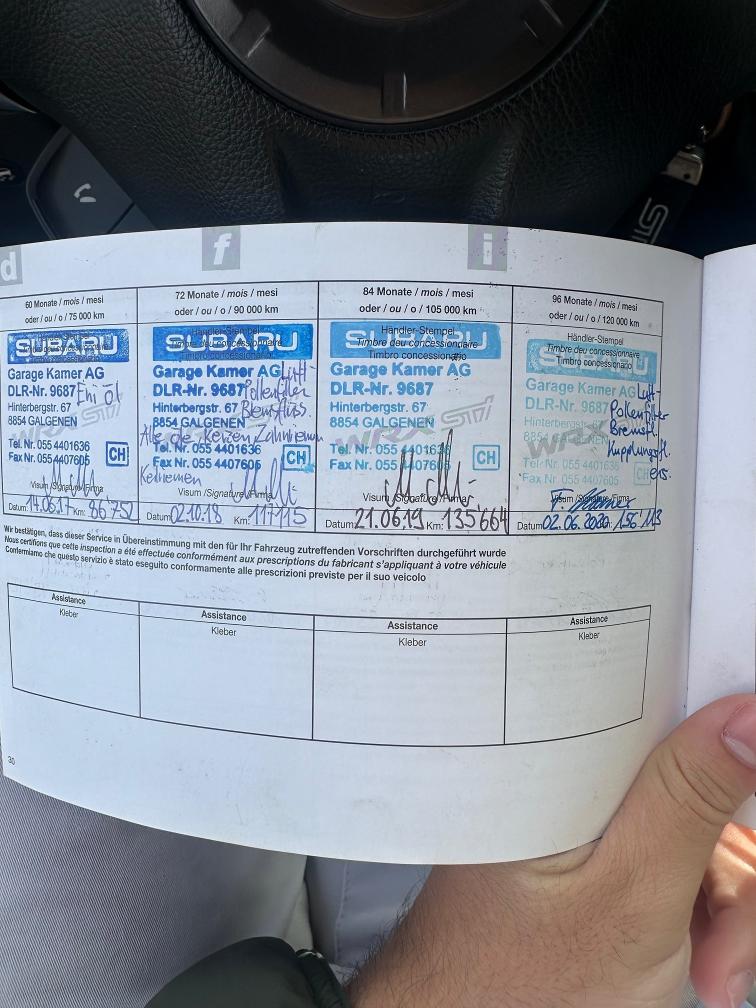 d
f
i
60 Monate / mois / mesi
oder / ou / o / 75 000 km
SUBARU
Garage Kamer AG
DLR-Nr. 9687
Öl
Hinterbergstr. 67
8854 GALGENEN
Tel. Nr. 055 4401636
Fax Nr. 055 4407605
CH
Visum /Signature /Firma
Datum: 14.06.17 Km: 86'752
72 Monate / mois / mesi
oder / ou / o / 90 000 km
Händler-Stempel
Timbre du concessionnaire
Timbro concessionario
SUBARU
Garage Kamer AG
Luft-
DLR-Nr. 9687
Pollenfilter
Hinterbergstr. 67
Bremsflüss.
8854 GALGENEN
Kerzen Zahnriemen
Tel. Nr. 055 4401636
Fax Nr. 055 4407605
CH
Keilriemen
Visum /Signature /Firma
Datum: 02.10.18 Km: 117'115
84 Monate / mois / mesi
oder / ou / o / 105 000 km
Händler-Stempel
Timbre deu concessionnaire
Timbro concessionario
SUBARU
Garage Kamer AG
DLR-Nr. 9687
Hinterbergstr. 67
8854 GALGENEN
WRX STI
Tel. Nr. 055 4401636
Fax Nr. 055 4407605
CH
Visum /Signature /Firma
Datum: 21.06.19 Km: 135'664
96 Monate / mois / mesi
oder / ou / o / 120 000 km
Händler-Stempel
Timbre deu concessionnaire
Timbro concessionario
SUBARU
Garage Kamer AG
Luft-
DLR-Nr. 9687
Pollenfilter
Hinterbergstr. 67
Bremsfl.
WRX
Kupplungsfl.
Tel. Nr. 055 4401636
Fax Nr. 055 4407605
CH
ers.
Visum /Signature /Firma
Datum: 02.06.2020 156'113
Wir bestätigen, dass dieser Service in Übereinstimmung mit den für Ihr Fahrzeug zutreffenden Vorschriften durchgeführt wurde
Nous certifions que cette inspection a été effectuée conformément aux prescriptions du fabricant s'appliquant à votre véhicule
Confermiamo che questo servizio è stato eseguito conformamente alle prescrizioni previste per il suo veicolo
Assistance
Kleber
Assistance
Kleber
Assistance
Kleber
Assistance
Kleber
30
STI